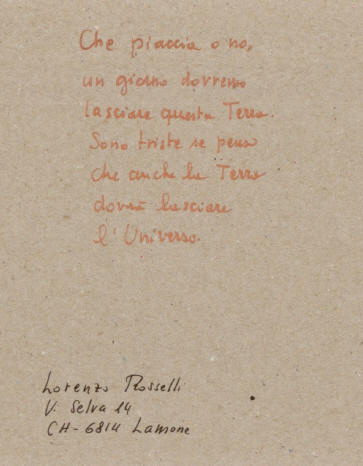 Che piaccia o no,
un giorno dovremo
lasciare questa Terra.
Sono triste se penso
che anche la Terra
dovrà lasciare
l'Universo.
Lorenzo Rosselli
V. Selva 14
CH-6814 Lamone